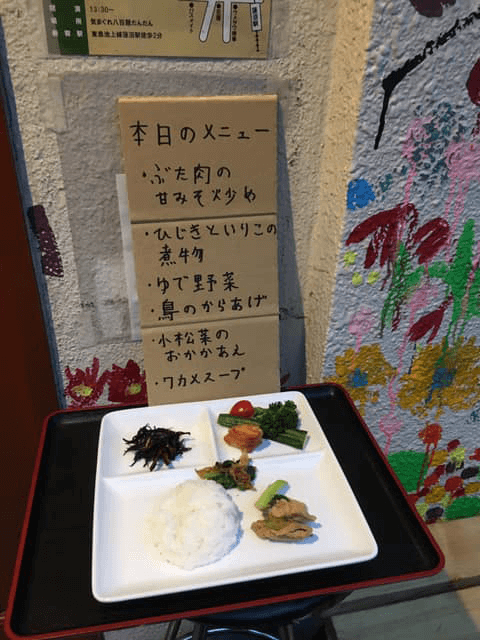 13:30~
気まぐれ八百屋だんだん
東急池上線蓮沼駅徒歩2分
蓮沼駅
本日のメニュー
・ぶた肉の
甘みそ炒め
・ひじきといりこの
煮物
・ゆで野菜
・鳥のからあげ
・小松菜の
おかかあえ
・ワカメスープ